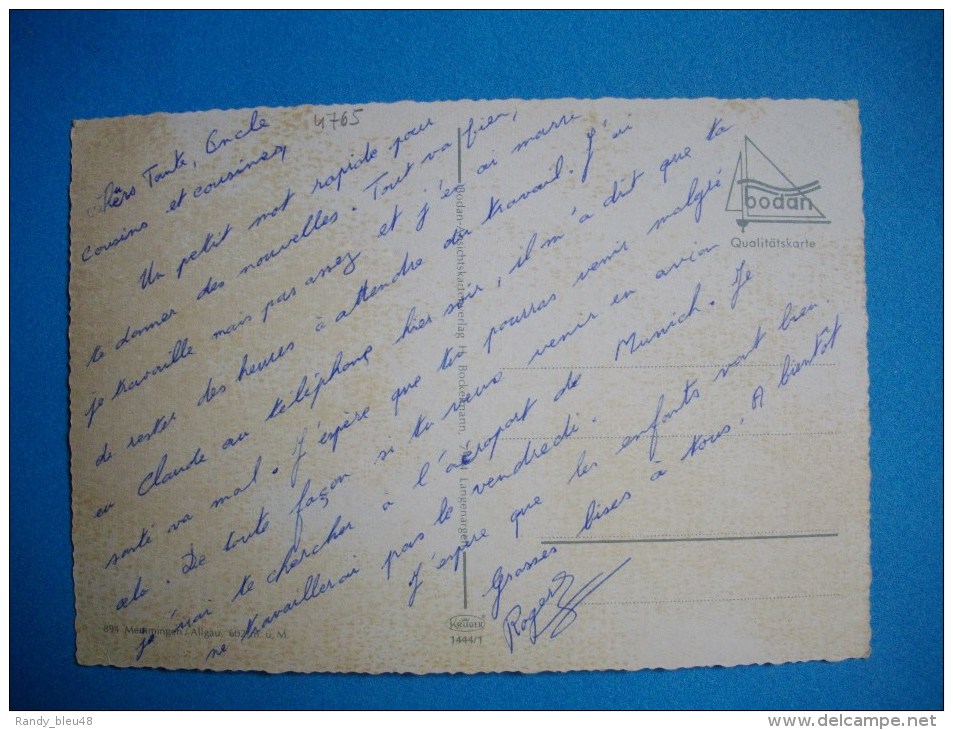 Chers Tante, Oncle
4765
cousins et cousines,
Un petit mot rapide pour
te donner des nouvelles. Tout va bien,
je travaille mais pas assez et j'en ai marre
de rester des heures à attendre du travail. J'ai
eu Claude au téléphone hier soir, il m'a dit que ta
santé va mal. J'espère que tu pourras venir malgré
cela. De toute façon si tu veux venir en avion
j'irai te chercher à l'aéroport de Munich. Je
ne travaillerai pas le vendredi.
J'espère que les enfants vont bien.
Grosses bises à tous. A bientôt
Roger
bodan
Qualitätskarte
Bodan-Ansichtskartenverlag H. Bockelmann, Langenargen
KRÜGER
1444/1
894 Memmingen/Allgäu, 602 m ü. M.
Randy_bleu48
www.delcampe.net